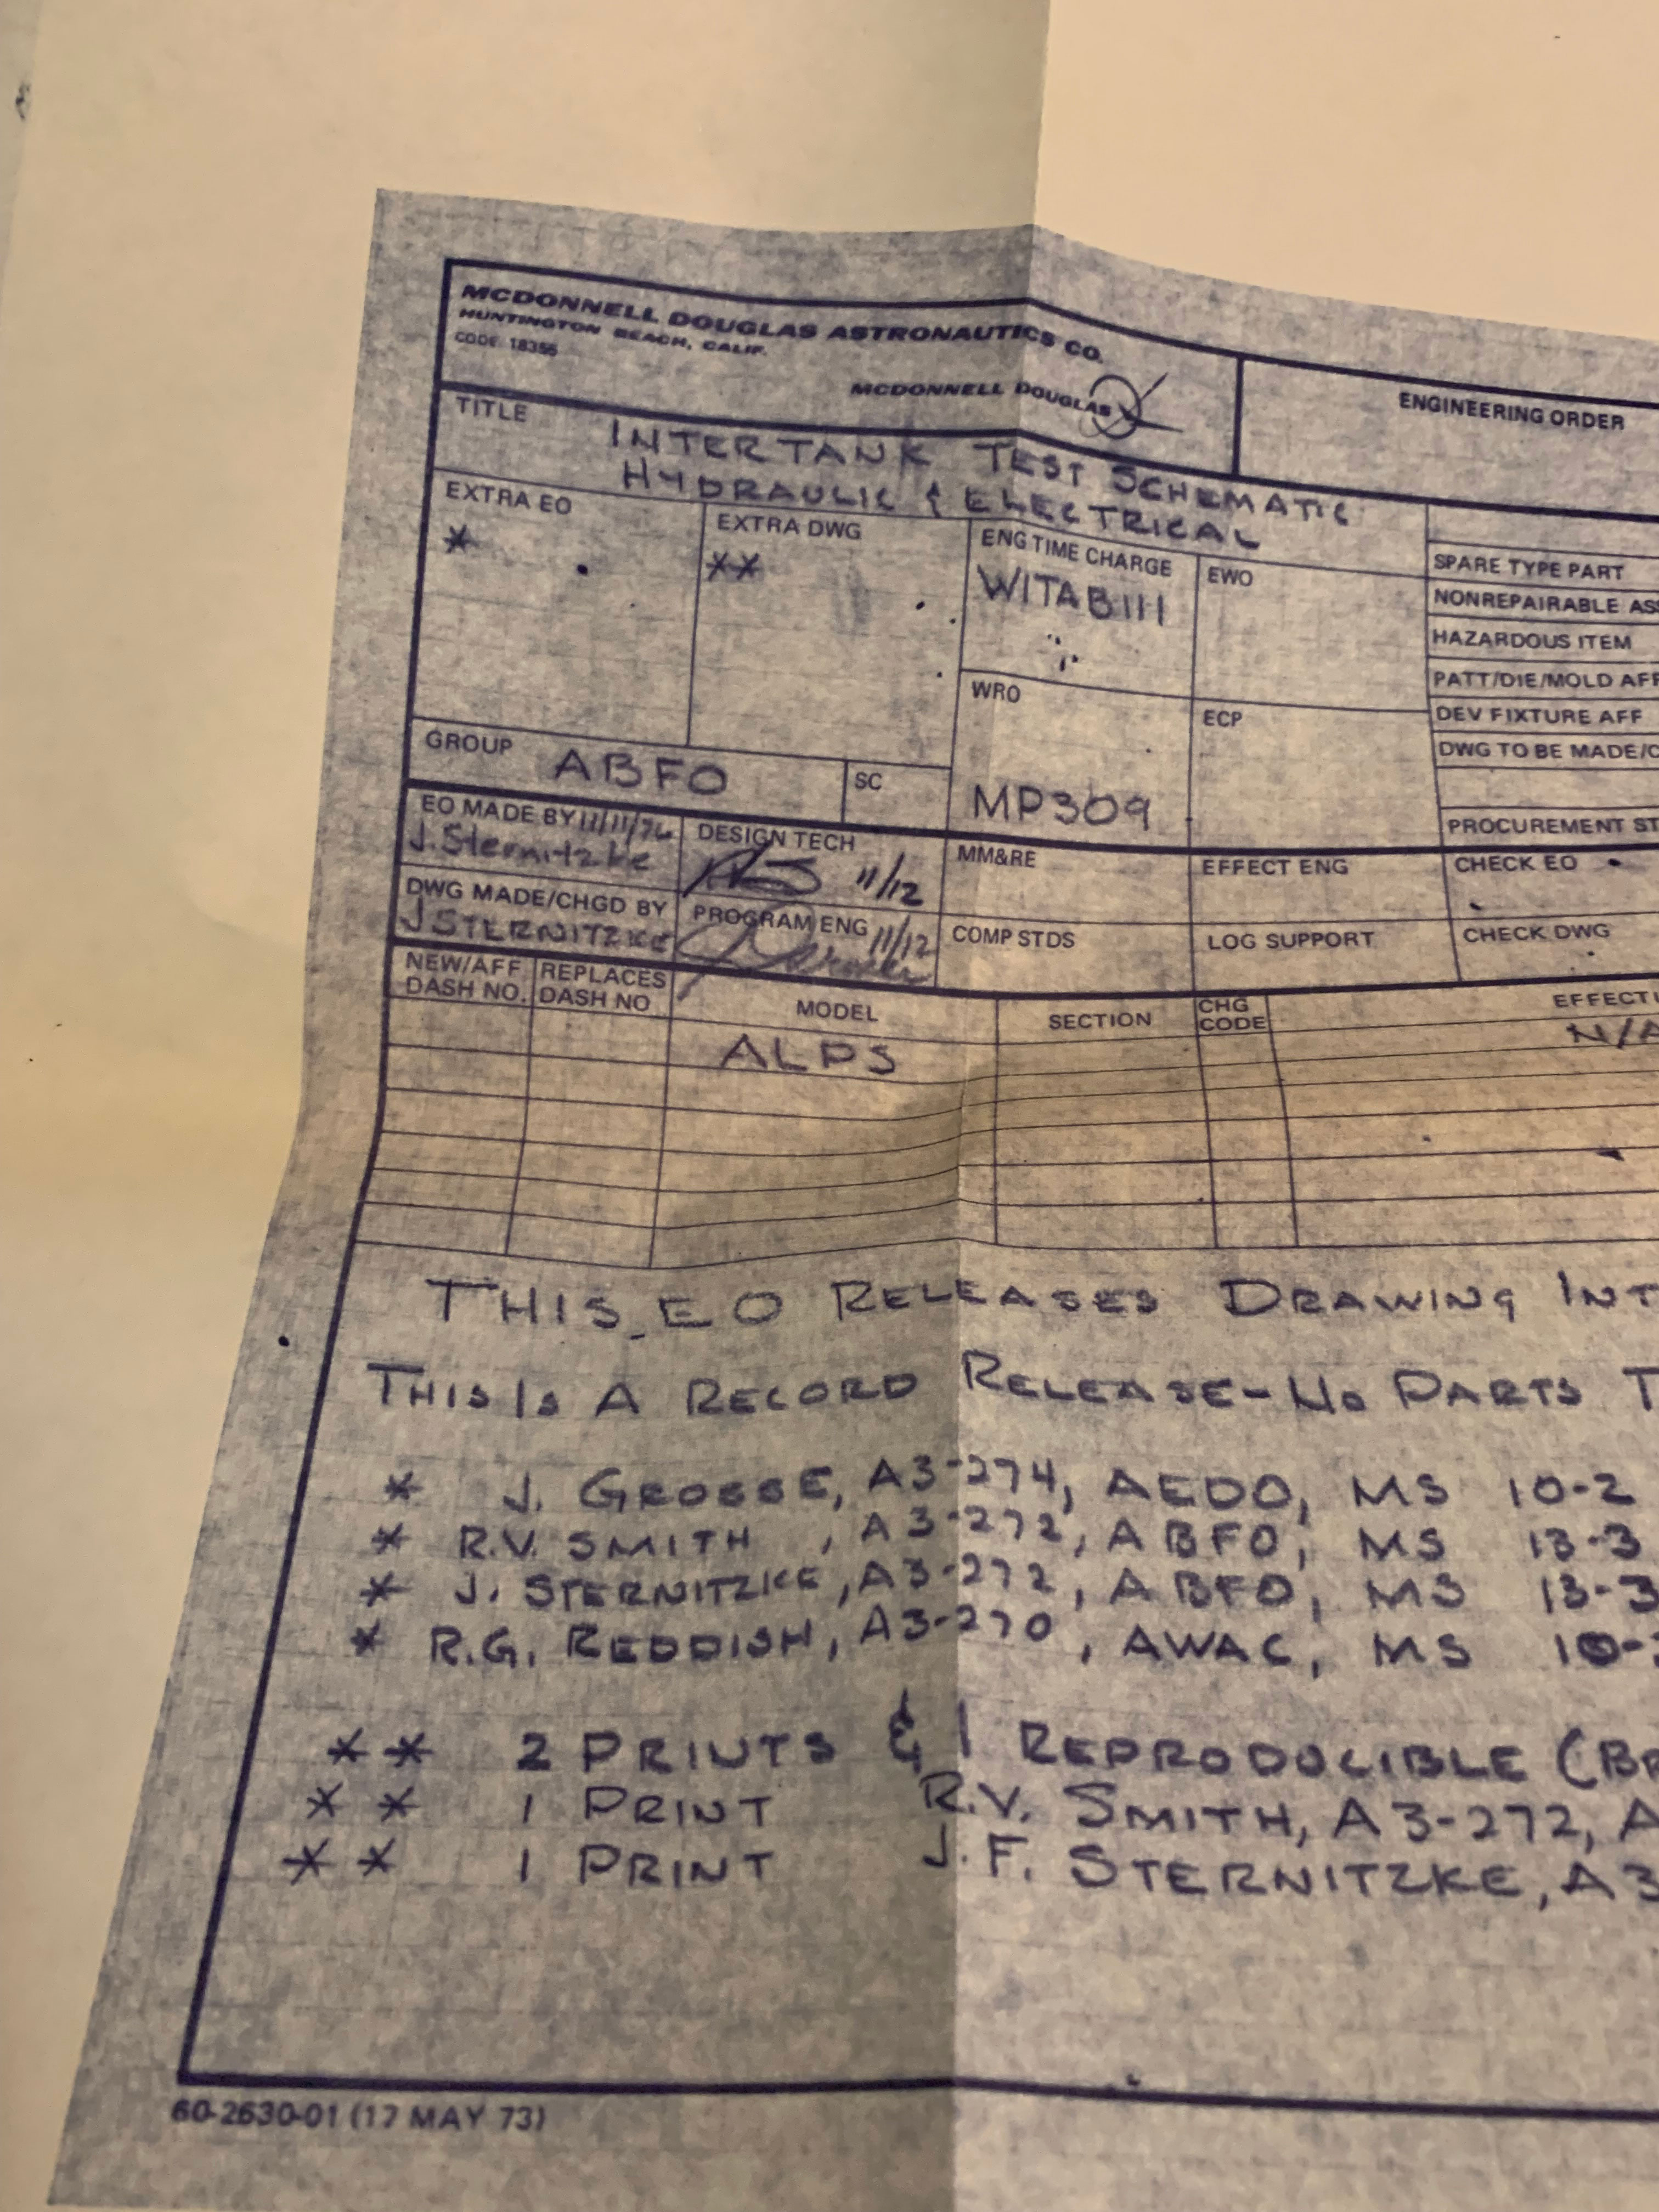 MCDONNELL DOUGLAS ASTRONAUTICS CO.
HUNTINGTON BEACH, CALIF.
CODE 18355
MCDONNELL DOUGLAS
ENGINEERING ORDER
TITLE
INTERTANK TEST SCHEMATIC
HYDRAULIC & ELECTRICAL
EXTRA EO
*
EXTRA DWG
**
ENG TIME CHARGE
WITAB111
EWO
SPARE TYPE PART
NONREPAIRABLE ASS
HAZARDOUS ITEM
PATT/DIE/MOLD AFF
DEV FIXTURE AFF
DWG TO BE MADE/C
PROCUREMENT ST
WRO
MP309
ECP
GROUP ABFO
SC
EO MADE BY 11/11/76
J. Sternitzke
DESIGN TECH
11/12
MM&RE
EFFECT ENG
CHECK EO
DWG MADE/CHGD BY
J STERNITZKE
PROGRAM ENG 11/12
COMP STDS
LOG SUPPORT
CHECK DWG
NEW/AFF DASH NO.
REPLACES DASH NO
MODEL
SECTION
CHG CODE
EFFECTI
ALPS
N/A
THIS EO RELEASES DRAWING INT
THIS IS A RECORD RELEASE-NO PARTS T
* J. GROSSE, A3-274, AEDO, MS 10-2
* R.V. SMITH, A3-272, ABFO, MS 13-3
* J. STERNITZKE, A3-272, ABFO, MS 13-3
* R.G. REDDISH, A3-270, AWAC, MS 10-
** 2 PRINTS & 1 REPRODUCIBLE (BR
** 1 PRINT R.V. SMITH, A3-272, A
** 1 PRINT J.F. STERNITZKE, A3
60-2630-01 (17 MAY 73)